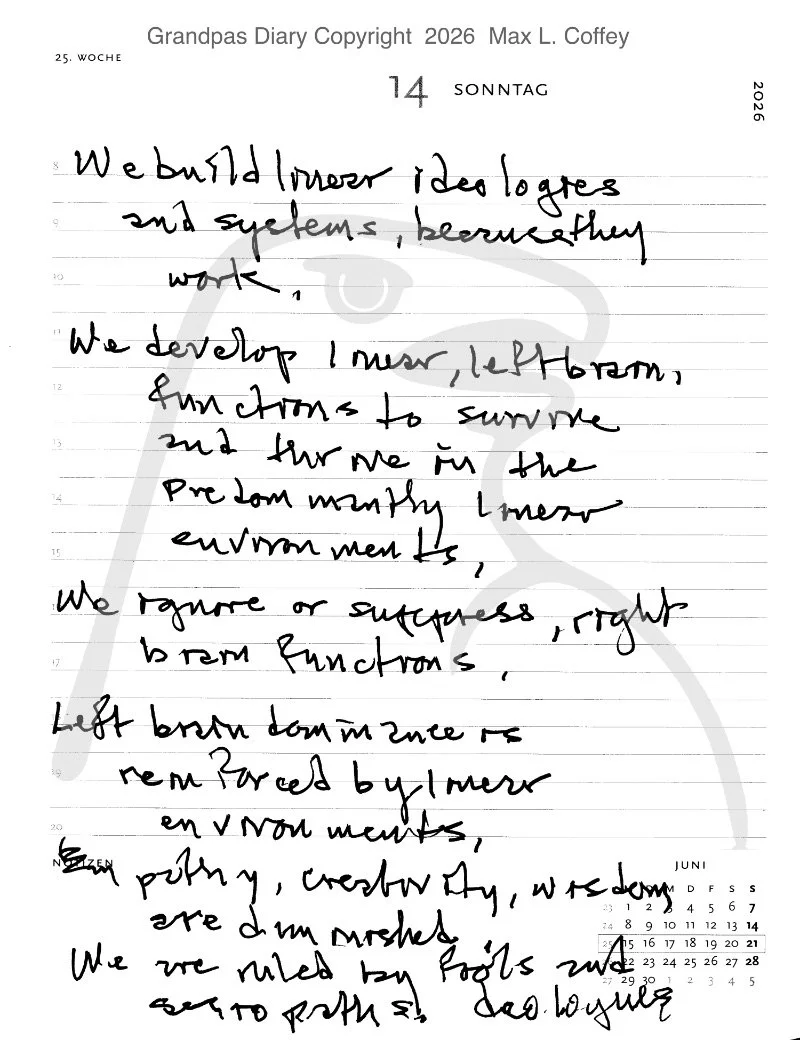 Grandpas Diary Copyright 2026 Max L. Coffey
25. WOCHE
14 SONNTAG
2026
8 We build linear ideologies
9 and systems, because they
10 work,
11 We develop linear, left brain,
12 functions to survive
13 and thrive in the
14 predominantly linear
15 environments,
We ignore or suppress, right
17 brain functions,
Left brain dominance is
19 reinforced by linear
20 environments,
NOTIZEN
Empathy, creativity, wisdom
are diminished
We are ruled by fools and
paths. ideologues
JUNI
M D F S S
23 1 2 3 4 5 6 7
24 8 9 10 11 12 13 14
25 15 16 17 18 19 20 21
22 23 24 25 26 27 28
27 29 30 1 2 3 4 5